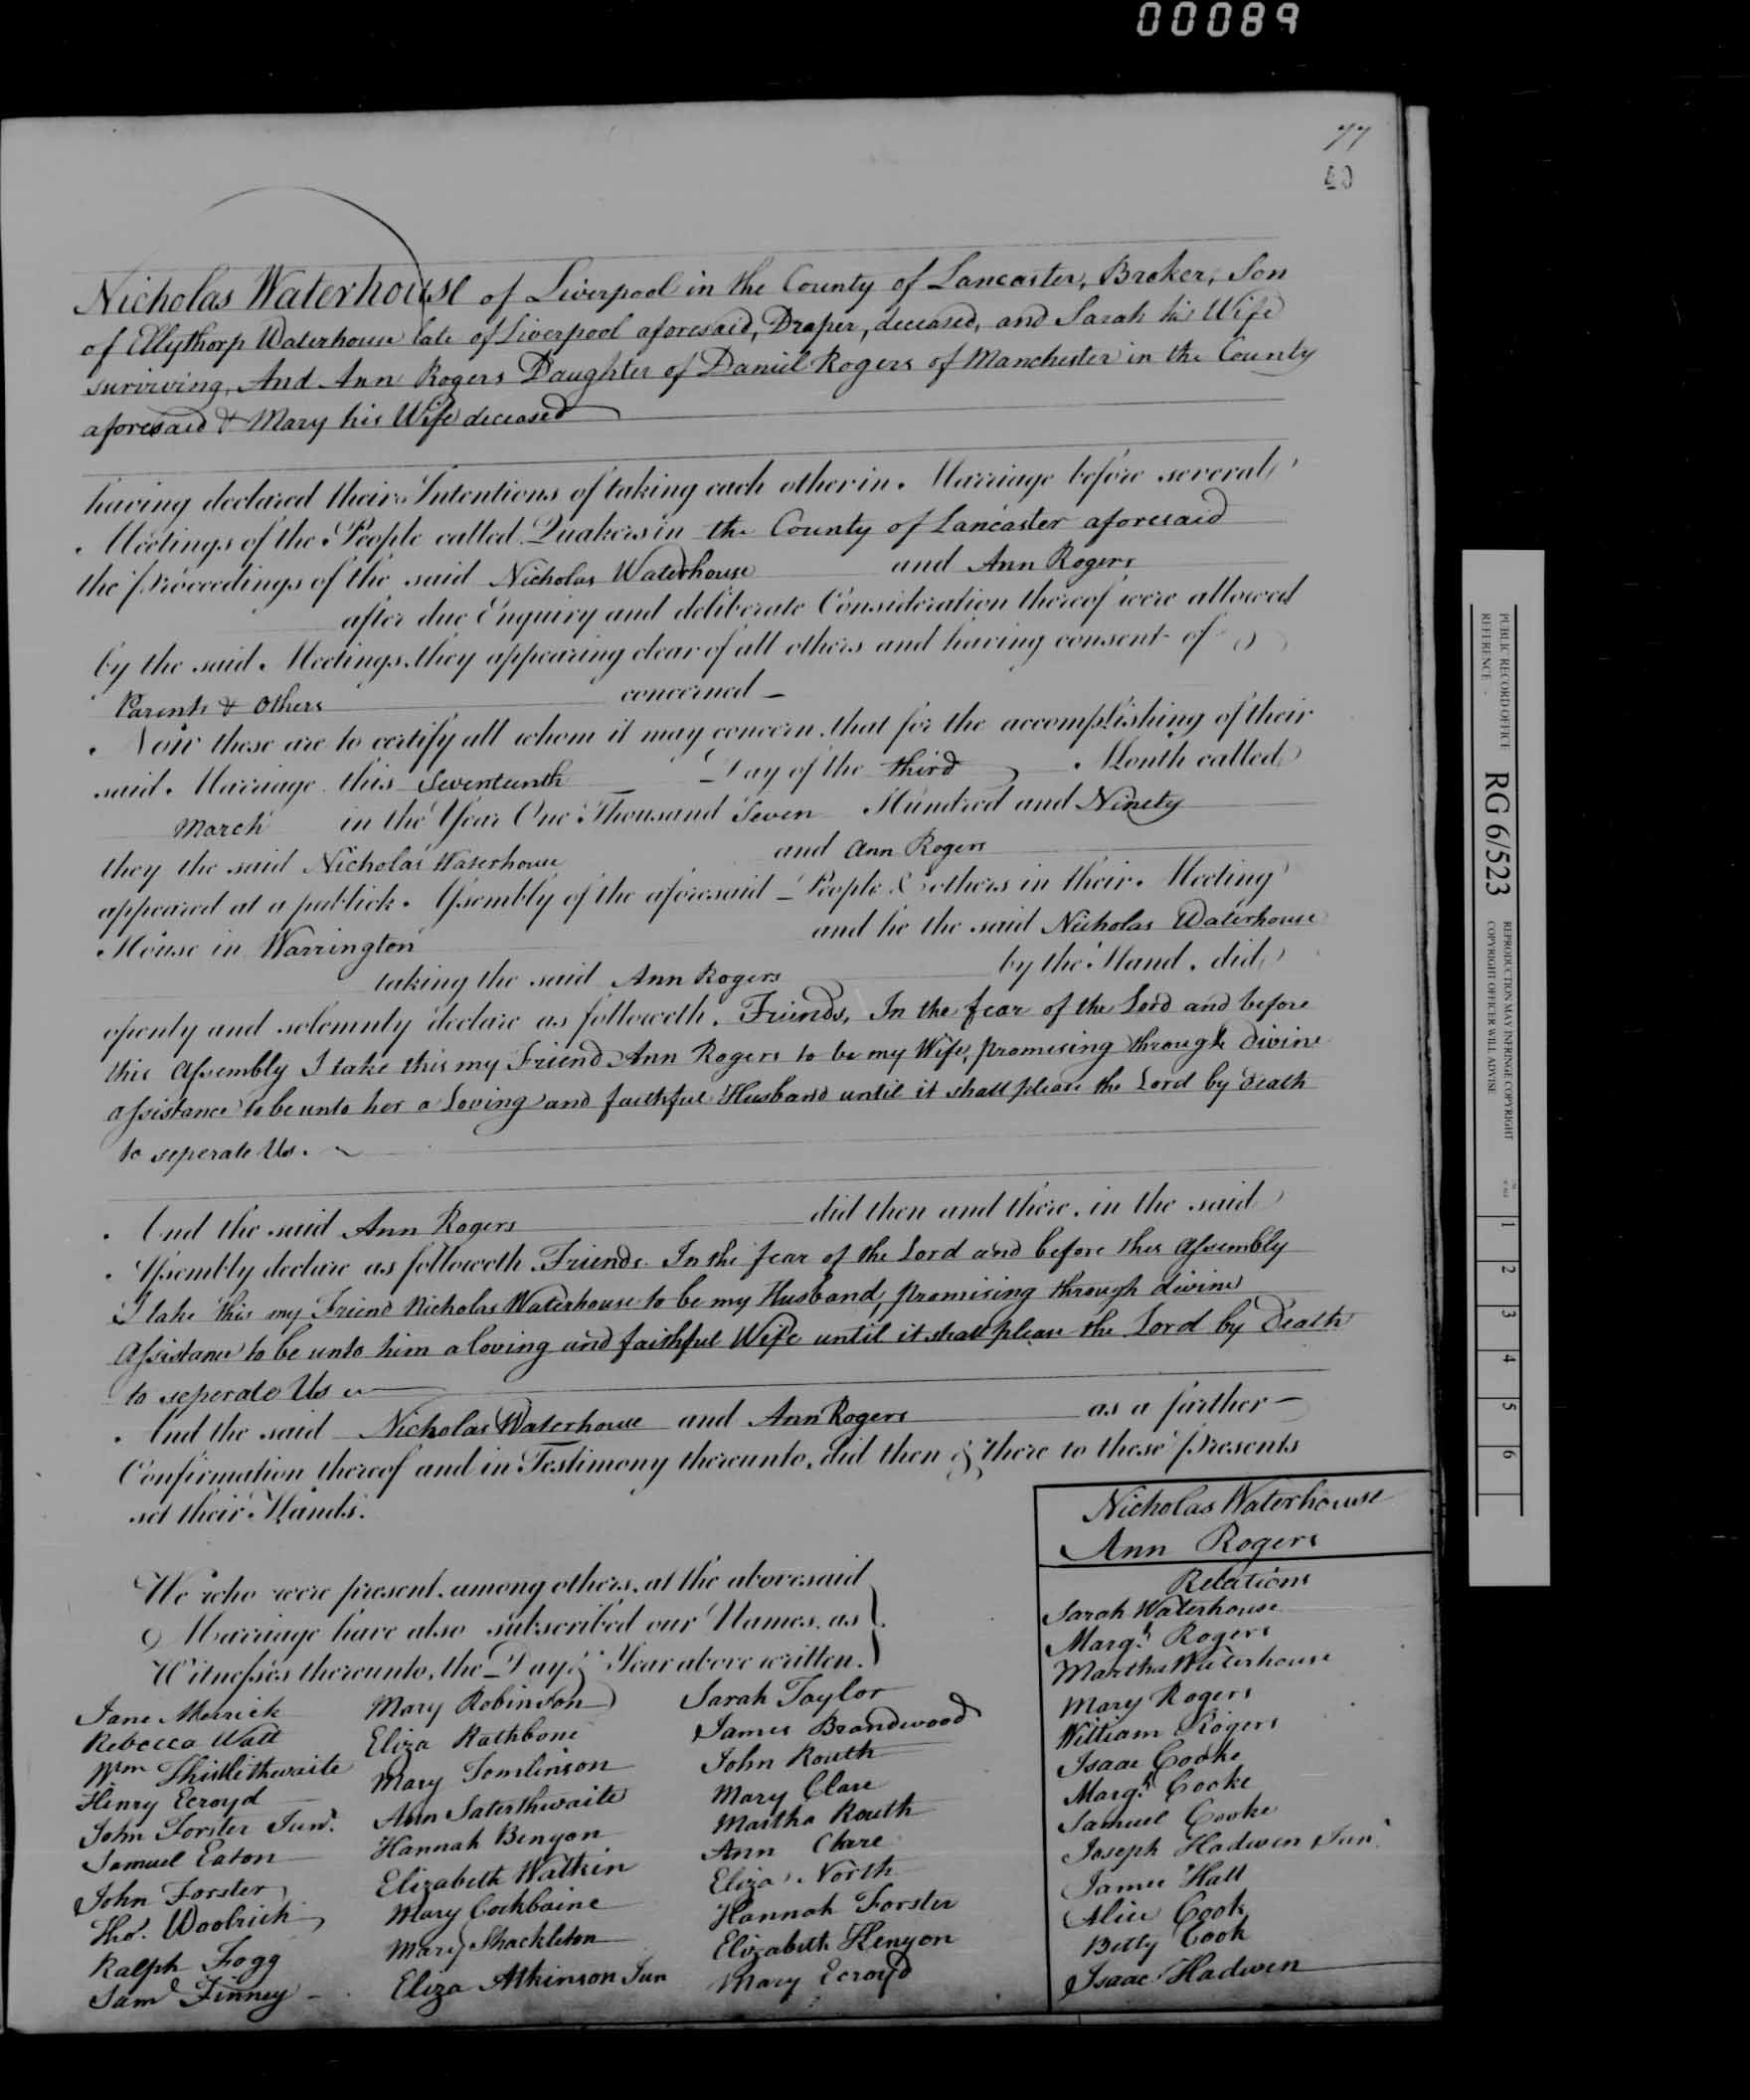 00089
77
40
Nicholas Waterhouse of Liverpool in the County of Lancaster, Broker, Son
of Ellythorp Waterhouse late of Liverpool aforesaid, Draper, deceased, and Sarah his Wife
surviving, And Ann Rogers Daughter of Daniel Rogers of Manchester in the County
aforesaid & Mary his Wife deceased
having declared their Intentions of taking each other in Marriage before several
Meetings of the People called Quakers in the County of Lancaster aforesaid
the Proceedings of the said Nicholas Waterhouse and Ann Rogers
after due Enquiry and deliberate Consideration thereof were allowed
by the said Meetings, they appearing clear of all others and having consent of
Parents & Others concerned —
Now these are to certify all whom it may concern, that for the accomplishing of their
said Marriage this Seventeenth Day of the third Month called
March in the Year One Thousand Seven Hundred and Ninety
they the said Nicholas Waterhouse and Ann Rogers
appeared at a publick Assembly of the aforesaid People & others in their Meeting
House in Warrington and he the said Nicholas Waterhouse
taking the said Ann Rogers by the Hand, did
openly and solemnly declare as followeth. Friends, In the fear of the Lord and before
this Assembly I take this my Friend Ann Rogers to be my Wife, promising through divine
assistance to be unto her a Loving and faithful Husband until it shall please the Lord by death
to seperate Us.
And the said Ann Rogers did then and there, in the said
Assembly declare as followeth. Friends. In the fear of the Lord and before this Assembly
I take this my Friend Nicholas Waterhouse to be my Husband, promising through divine
Assistance to be unto him a loving and faithful Wife until it shall please the Lord by Death
to seperate Us
And the said Nicholas Waterhouse and Ann Rogers as a further —
Confirmation thereof and in Testimony thereunto, did then & there to these Presents
set their Hands.
Nicholas Waterhouse
Ann Rogers
We who were present, among others, at the abovesaid
Marriage have also subscribed our Names, as
Witnesses thereunto, the Day & Year above written.
Jane Merrick
Rebecca Watt
Wm Thistlethwaite
Henry Ecroyd
John Forster Junr.
Samuel Eaton
John Forster
Thos. Woolrich
Ralph Fogg
Saml Finney
Mary Robinson
Eliza Rathbone
Mary Tomlinson
Ann Saterthwaite
Hannah Benyon
Elizabeth Watkin
Mary Cockbaine
Mary Shackleton
Eliza Atkinson Jun
Sarah Taylor
James Brandwood
John Routh
Mary Clare
Martha Routh
Ann Clare
Eliza. North
Hannah Forster
Elizabeth Kenyon
Mary Ecroyd
Relations
Sarah Waterhouse
Margt. Rogers
Martha Waterhouse
Mary Rogers
William Rogers
Isaac Cooke
Margt. Cooke
Samuel Cooke
Joseph Hadwen Junr
James Hall
Alice Cook
Betty Cook
Isaac Hadwen
PUBLIC RECORD OFFICE
REFERENCE -
RG 6/523
REPRODUCTION MAY INFRINGE COPYRIGHT
COPYRIGHT OFFICER WILL ADVISE
1 2 3 4 5 6